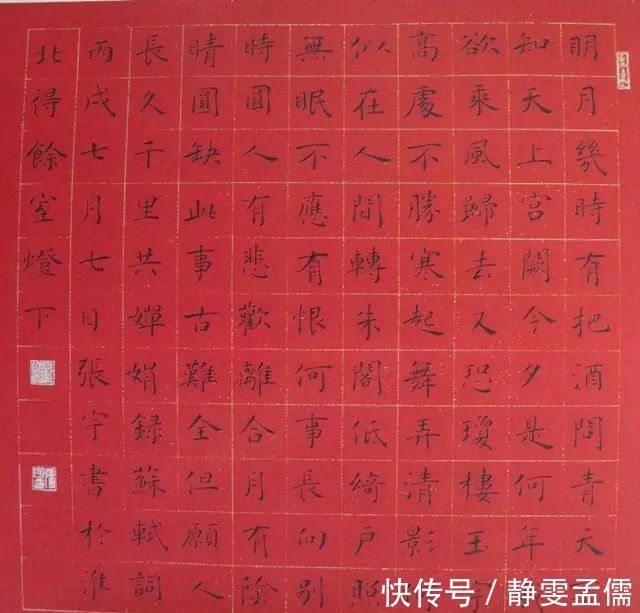 明月幾時有把酒問青天
知天上宮闕今夕是何年
欲乘風歸去又恐瓊樓玉宇
高處不勝寒起舞弄清影
似在人間轉朱閣低綺戶照
無眠不應有恨何事長向别
時圓人有悲歡離合月有陰
晴圓缺此事古難全但願人
長久千里共嬋娟錄蘇軾詞
丙戌七月七日張宇書於淮
北得餘室燈下
快传号 / 静雯孟儒